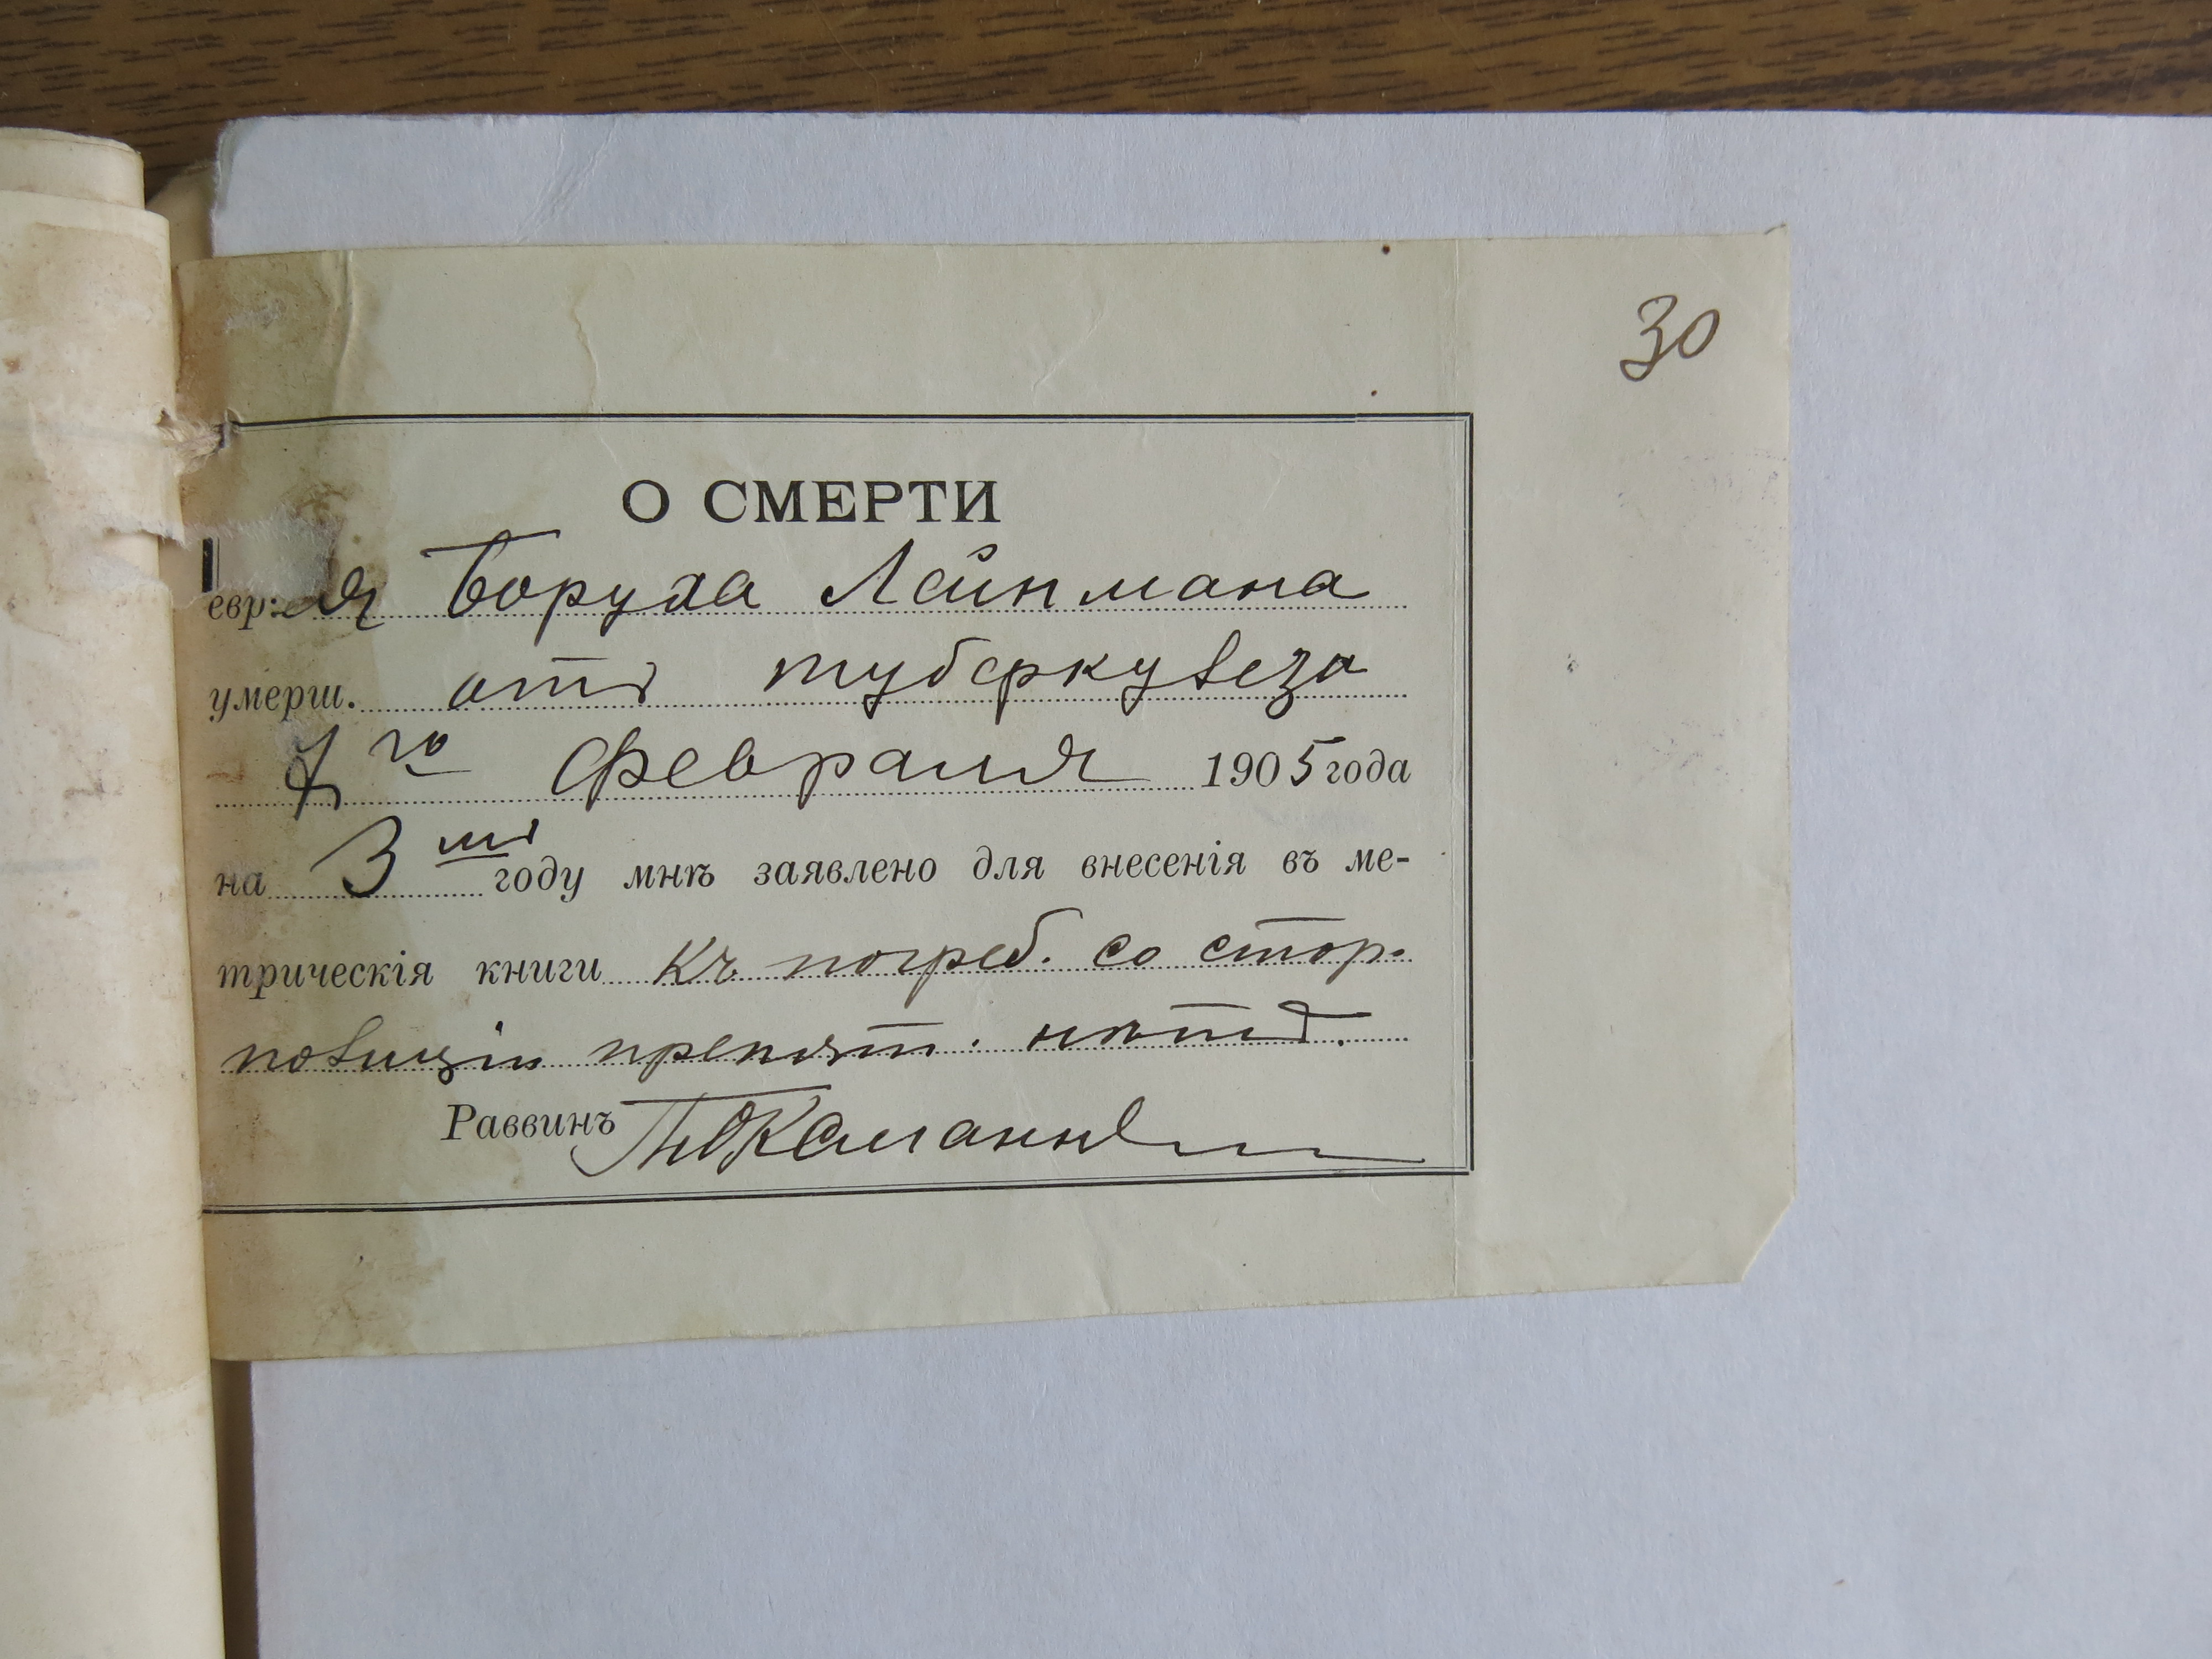 30
О СМЕРТИ
евр: Боруха Лайнмана
умерш. отъ туберкулеза
го февраля 1905 года
на 3 мъ году мнѣ заявлено для внесенія въ ме-
трическія книги Къ погреб. со стор.
полиціи препят. нѣтъ.
Раввинъ